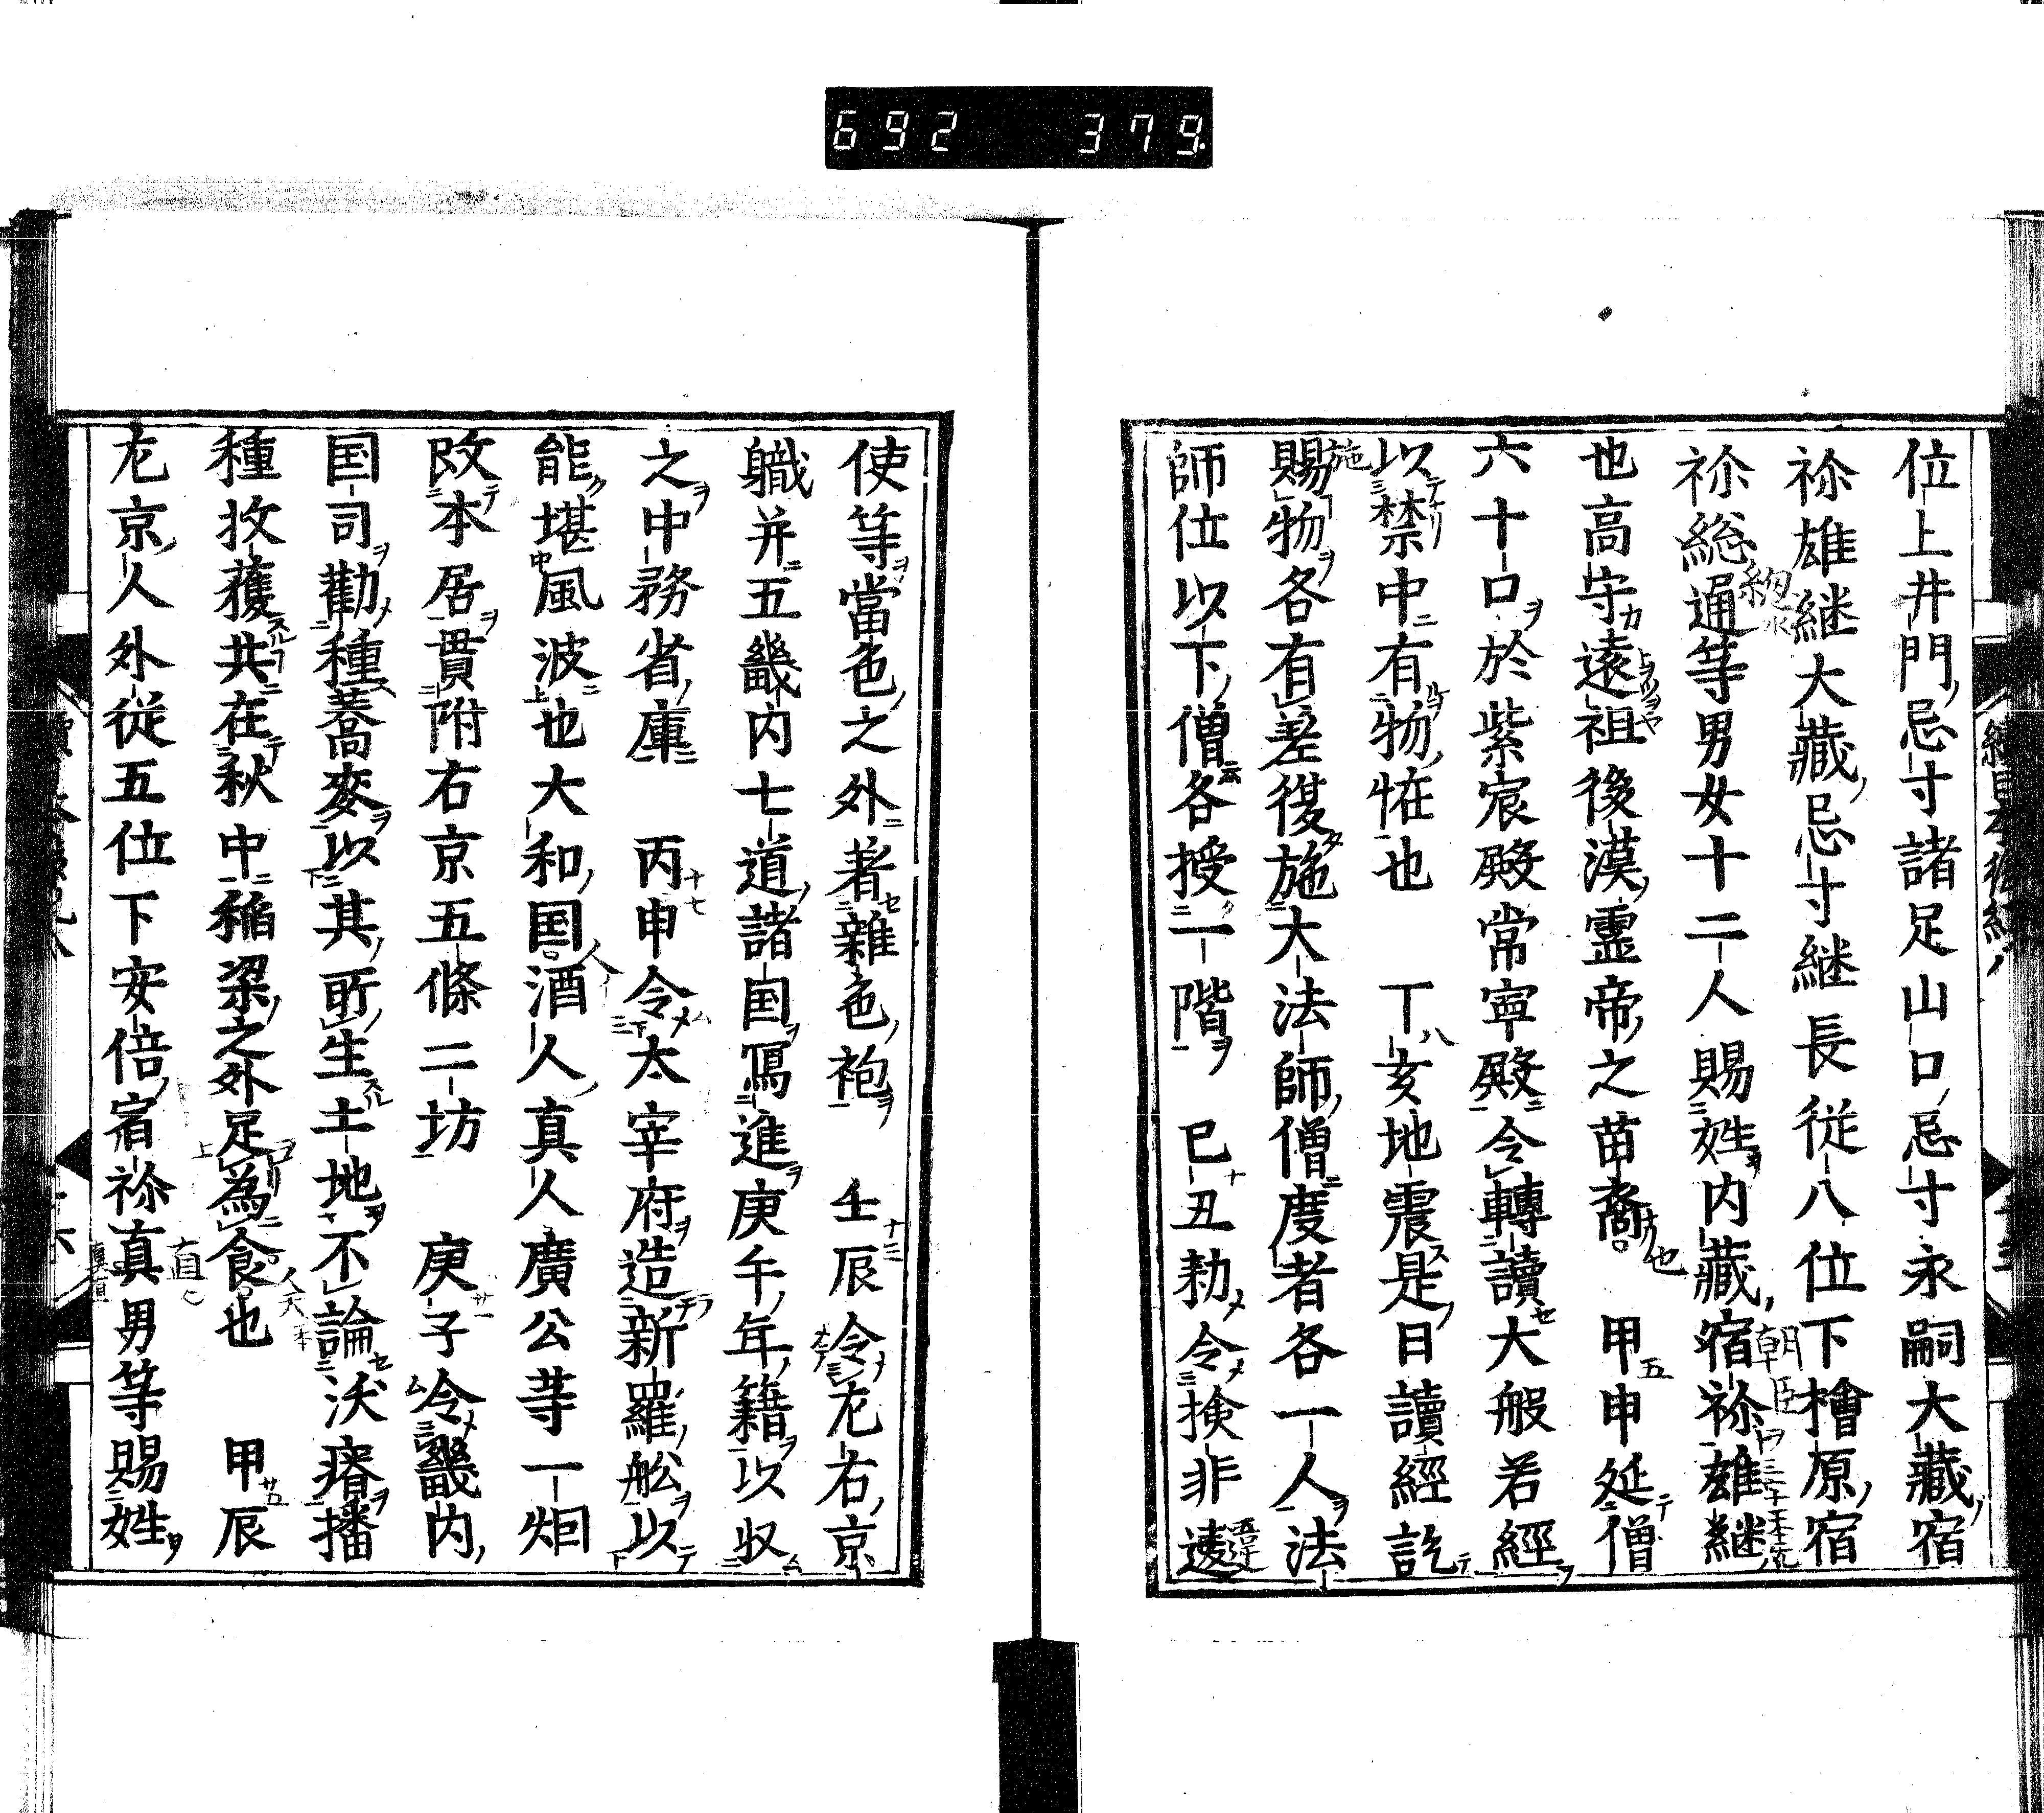 692 379
位上井門忌寸諸足山口忌寸永嗣大藏宿
祢雄継大藏忌寸継長従八位下檜原宿
祢総通等男女十二人賜姓内藏宿祢雄継
也高守遠祖後漢霊帝之苗裔 甲申延僧
六十口於紫宸殿常寧殿令轉讀大般若經
以禁中有物恠也 丁亥地震是日讀經訖
賜物各有差復施大法師僧度者各一人法
師位以下僧各授一階 已丑勅令検非違
使等當色之外著雜色袍 壬辰令左右京
職并五畿内七道諸国冩進庚午年籍以収
之中務省庫 丙申令太宰府造新羅舩以
能堪風波也大和国酒人真人廣公等一烟
改本居貫附右京五條二坊 庚子令畿内
国司勸種蕎麥以其所生土地不論沃瘠播
種收獲共在秋中稲梁之外足為食也 甲辰
左京人外従五位下安倍宿祢真男等賜姓